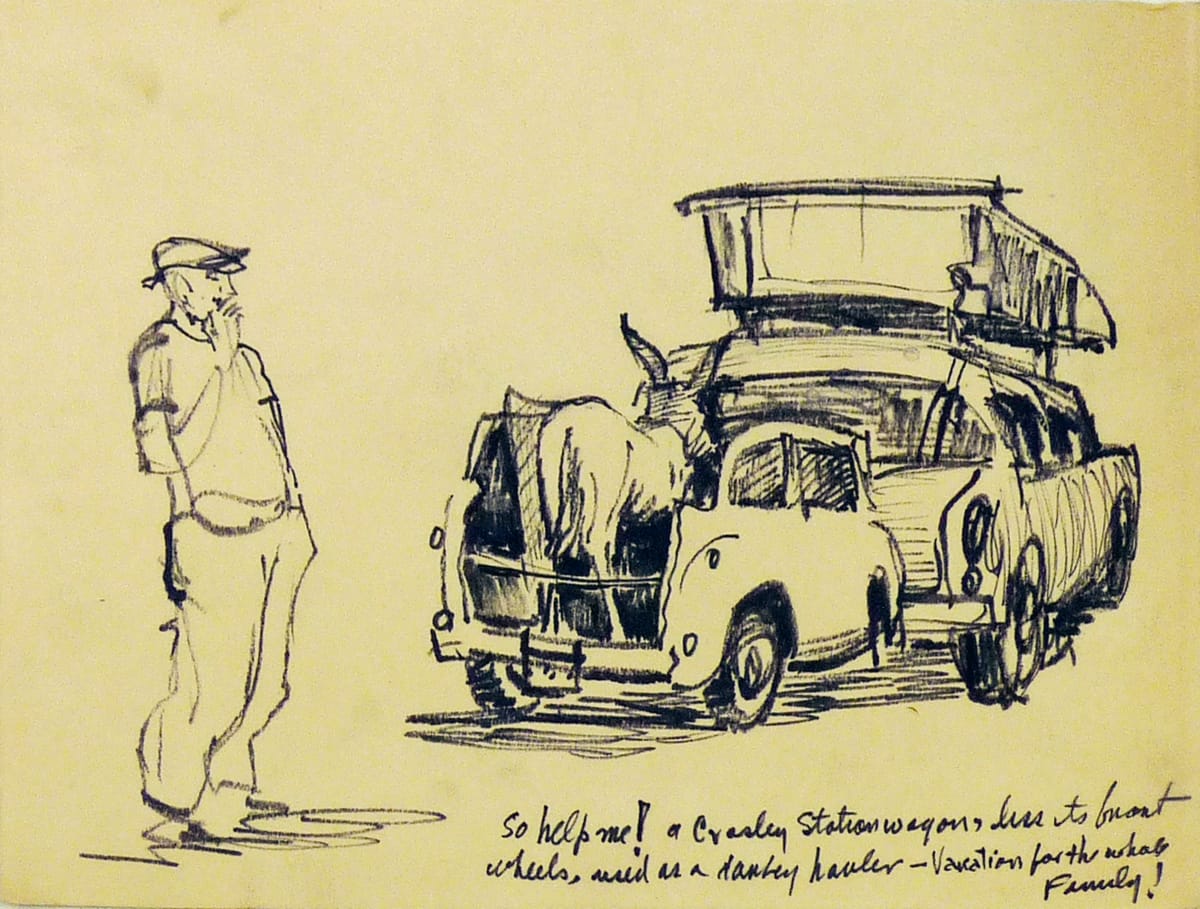 So help me! a Crosley Stationwagon, less its front
wheels, used as a donkey hauler – Vacation for the whole
Family!